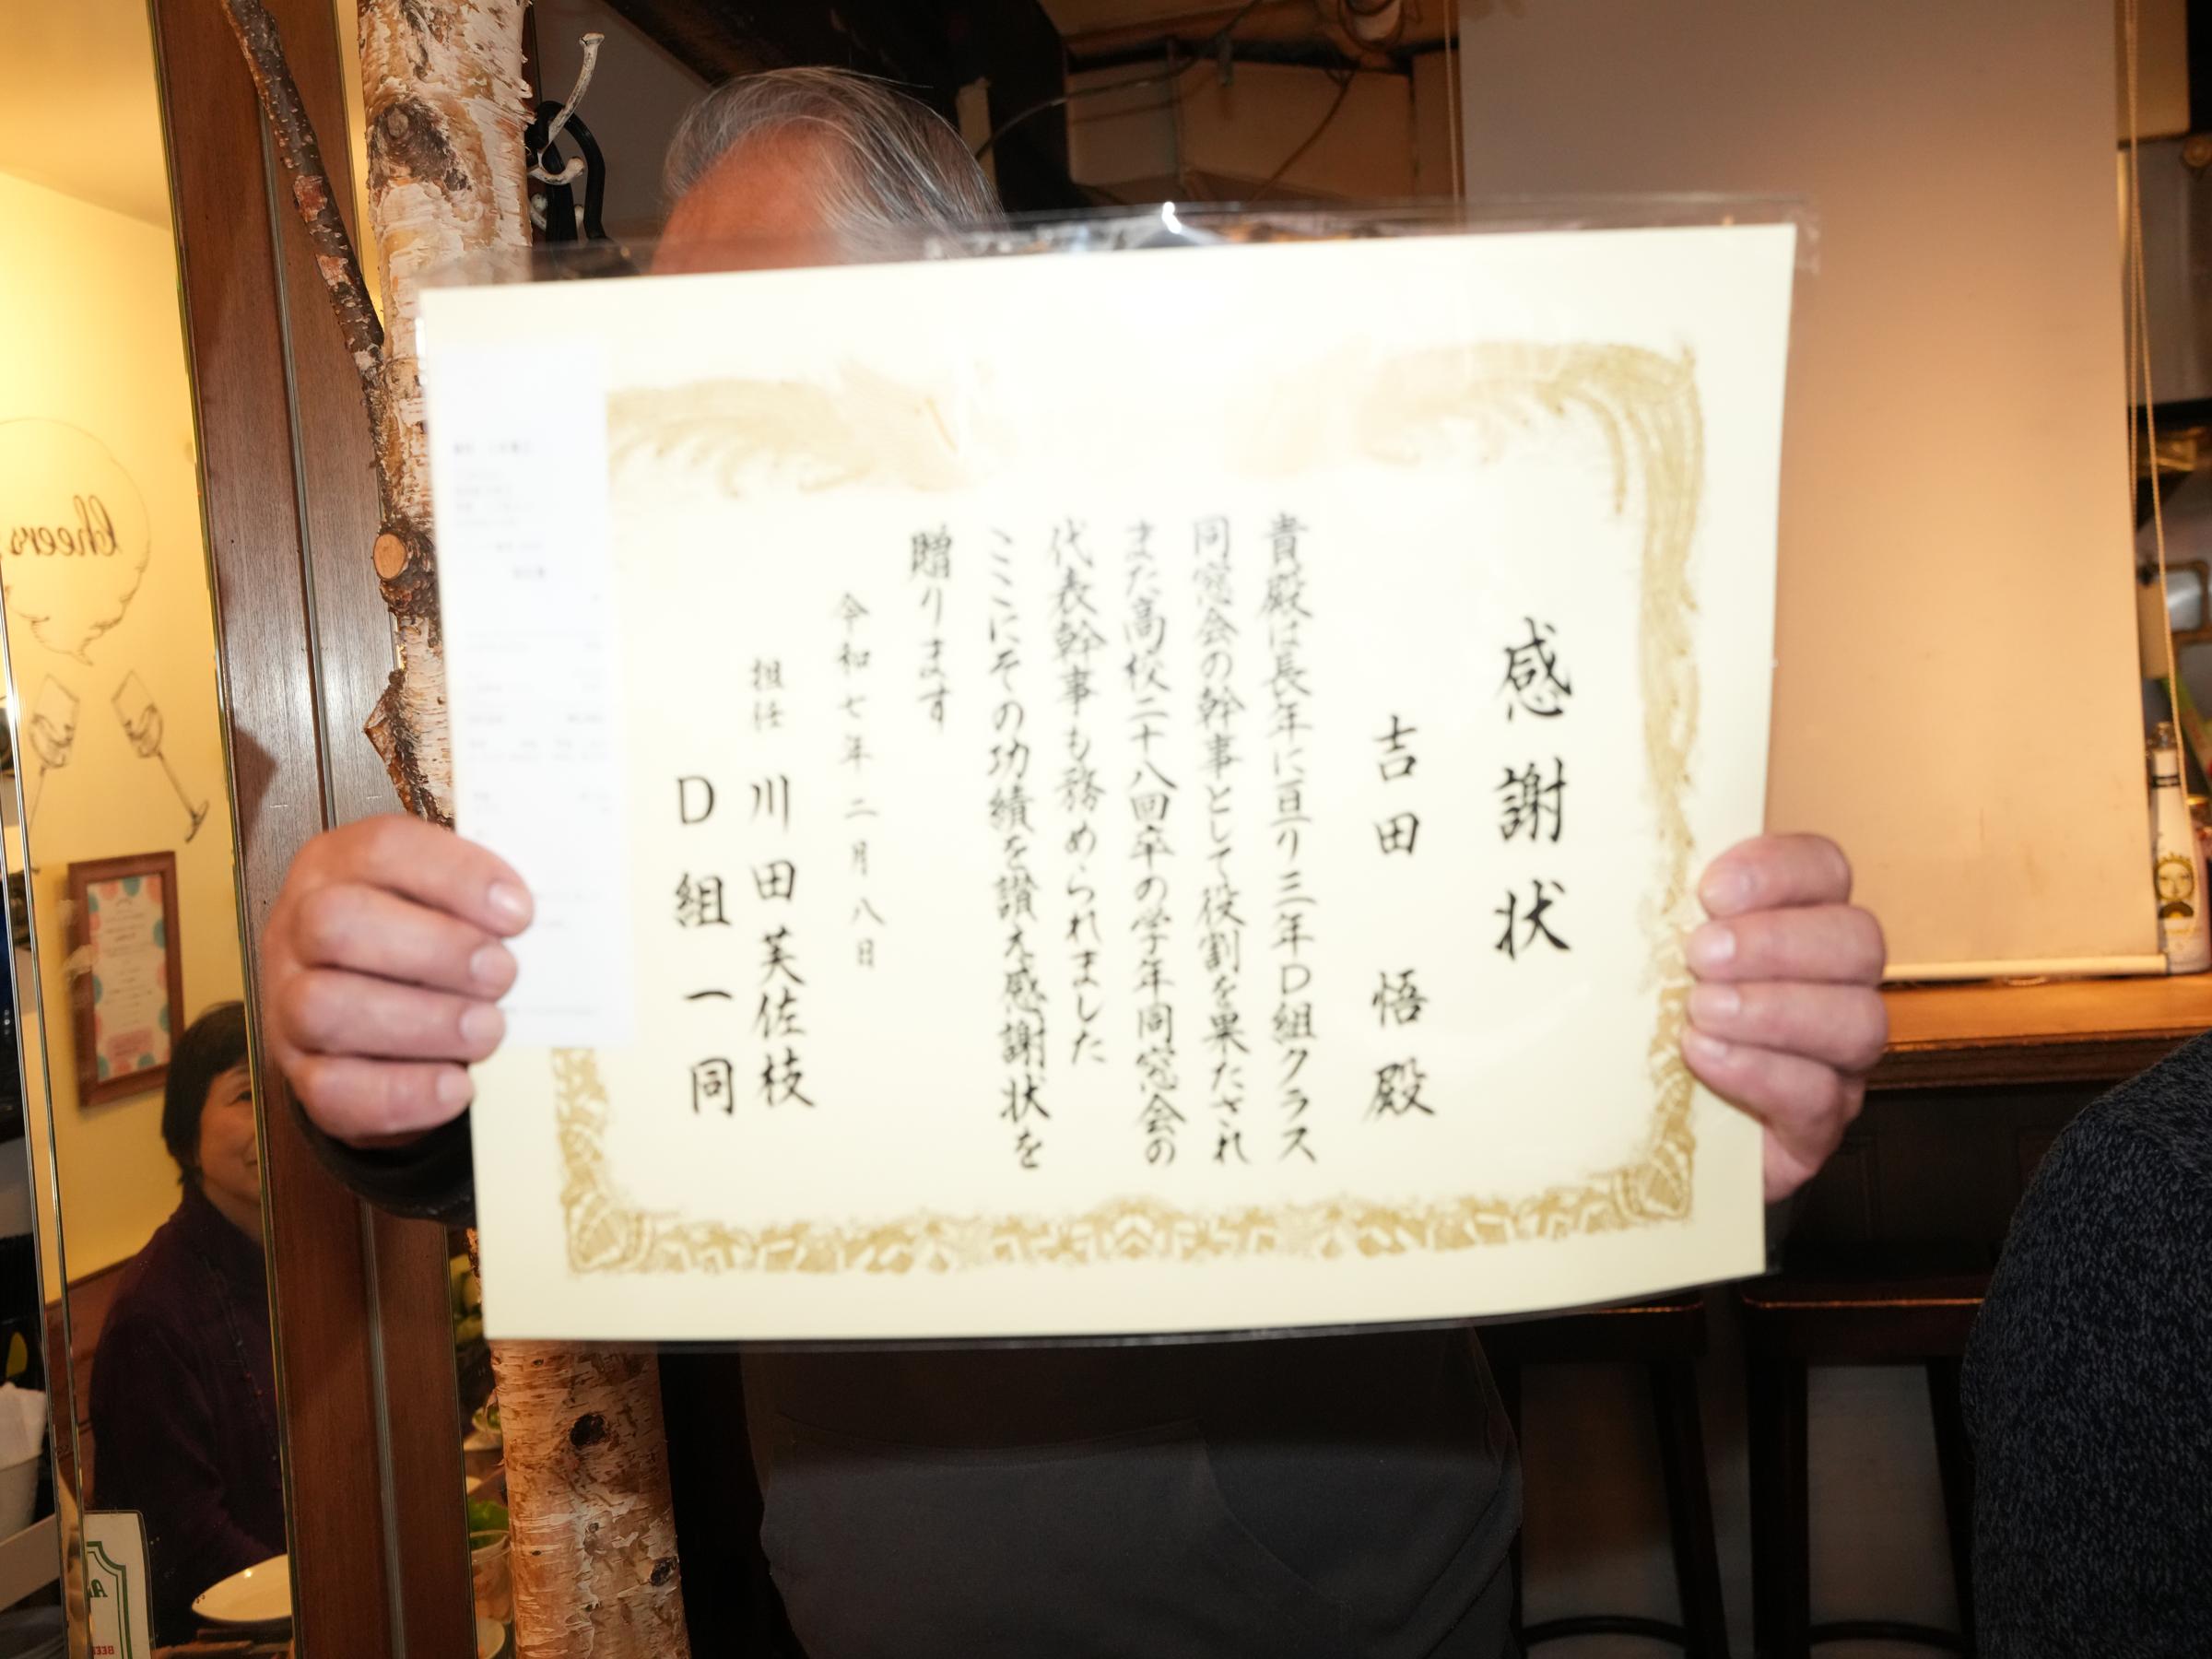 感謝状
吉田 悟 殿
貴殿は長年に亘り三年D組クラス
同窓会の幹事として役割を果たされ
また高校二十八回卒の学年同窓会の
代表幹事も務められました
ここにその功績を讃え感謝状を
贈ります
令和七年二月八日
担任 川田芙佐枝
D組一同
cheers